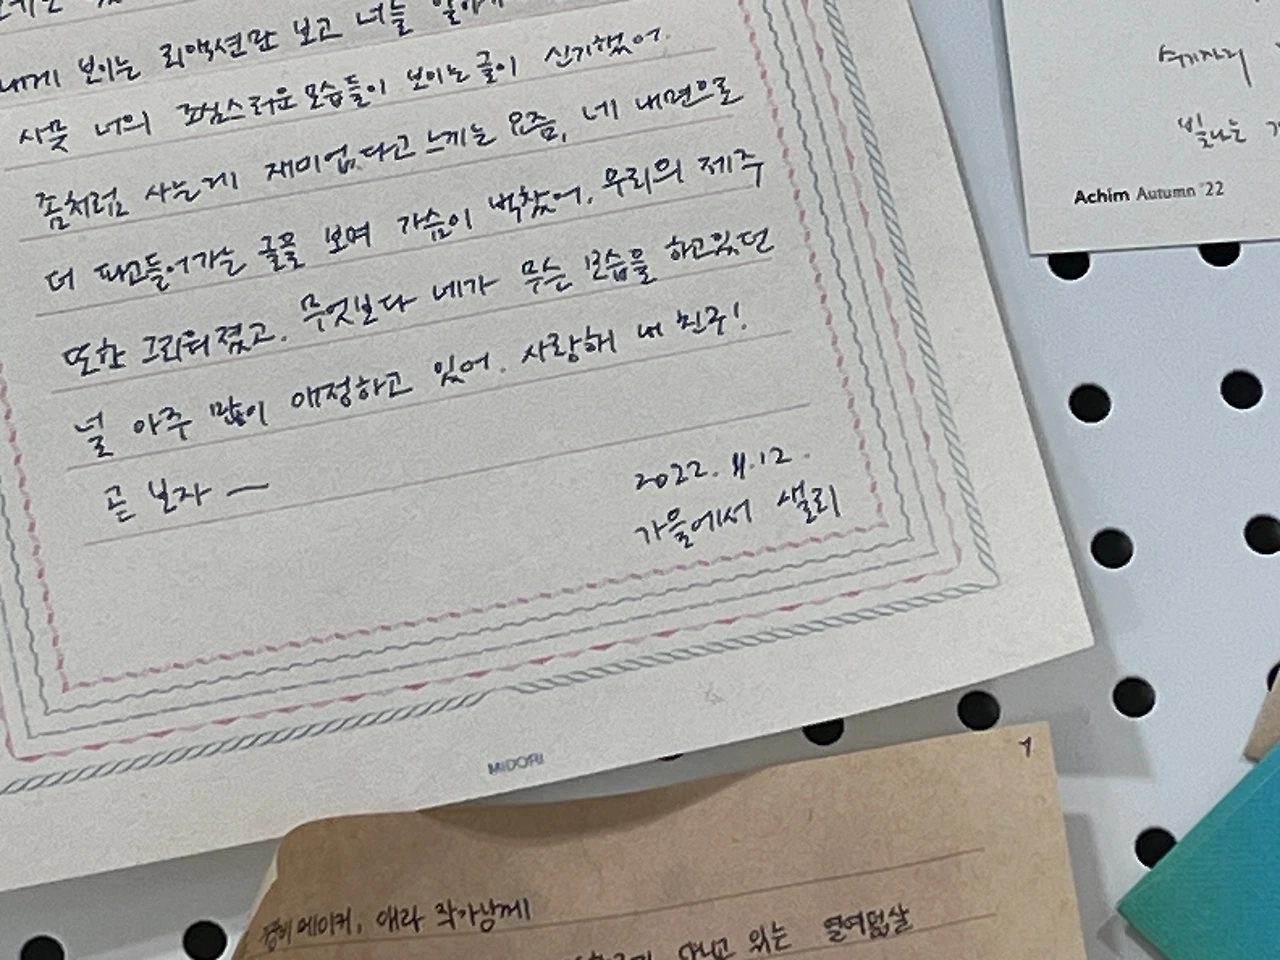 내게 보이는 리액션만 보고 너를
사뭇 너의 조심스러운 모습들이 보이는 글이 신기했어.
좀처럼 사는게 재미없다고 느끼는 요즘, 네 내면으로
더 파고들어가는 글을 보며 가슴이 벅찼어. 우리의 제주
또한 그리워졌고. 무엇보다 네가 무슨 모습을 하고있던
널 아주 많이 애정하고 있어. 사랑해 내 친구!
곧 보자 —
2022. 11. 12.
가을에서 샐리
MiDORi
빛나는
Achim Autumn '22
1
에이커, 애라 작가님께
다니고 있는 열여덟살